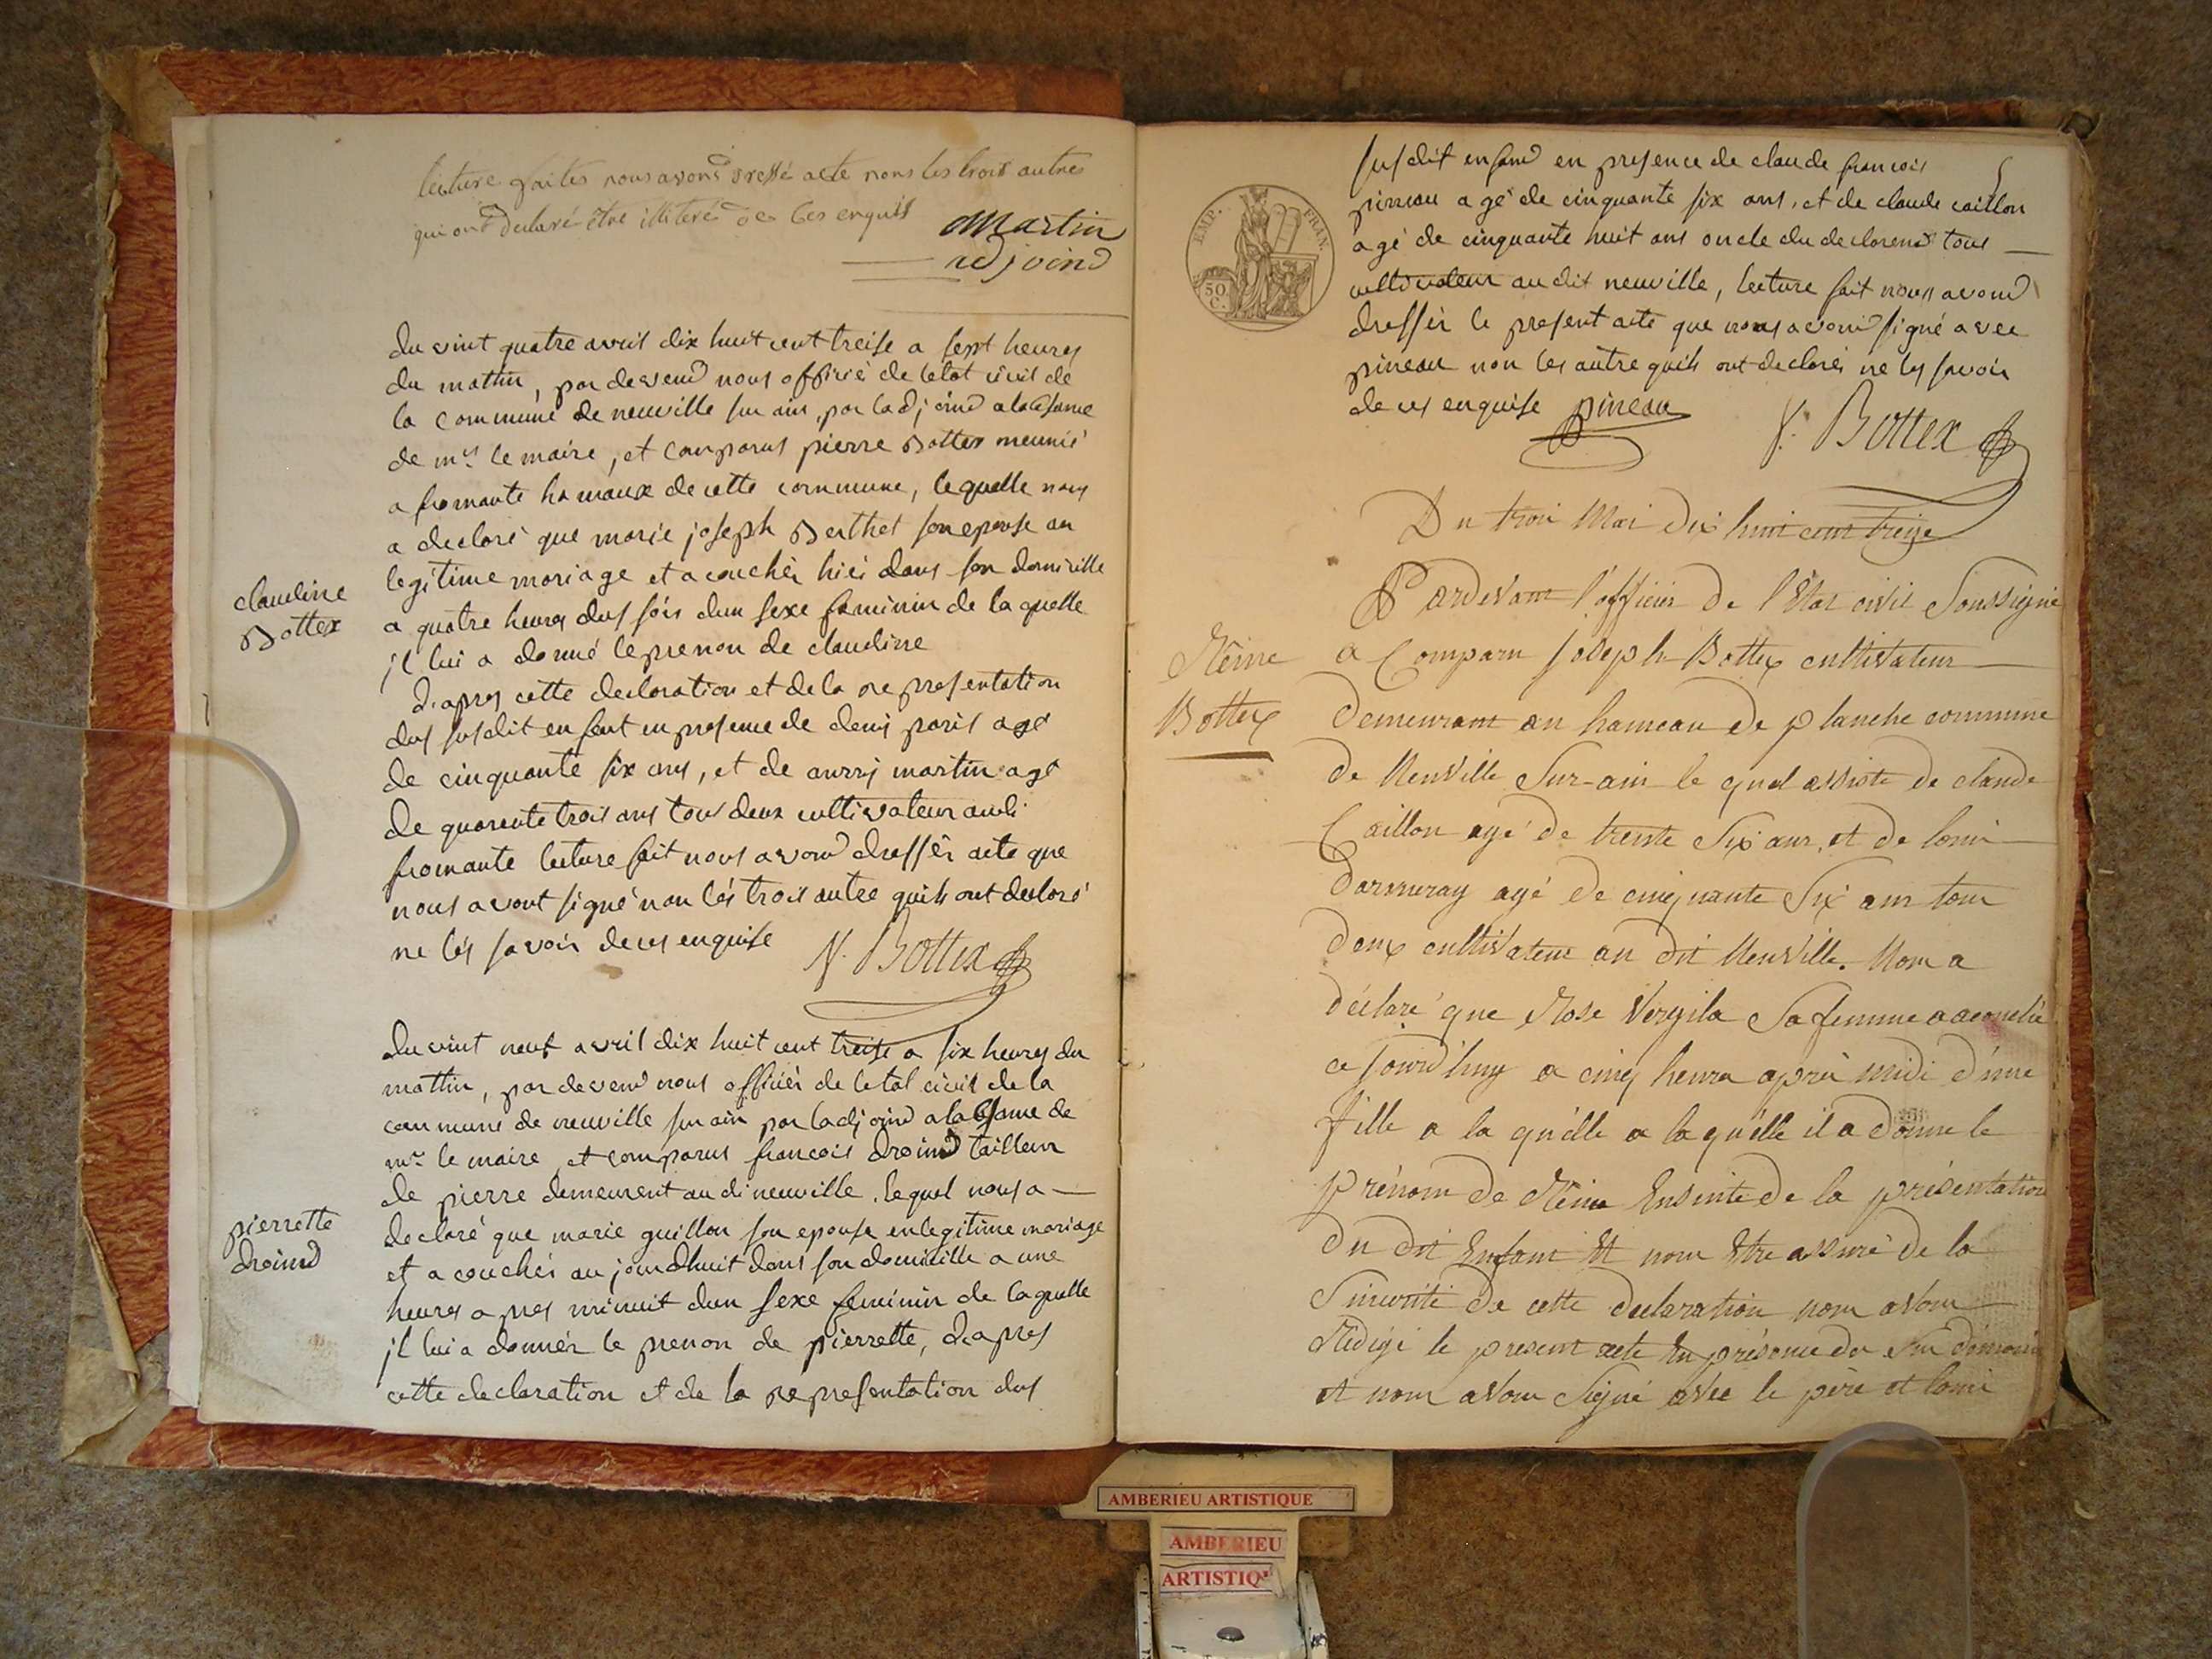 lecture faites nous avons dressé acte nons les trois autres
qui ont declaré être illiteré de ces enquis
Martin
adjoind
du vint quatre avril dix huit cent treise a sept heures
du mattin, par devend nous officié de letat civil de
la commune de neuville sur ain, par ladjoind a la
de mr le maire, et comparus pierre Bottex meunié
a fromante hamaux de cette commune, lequelle nous
a declaré que marie joseph Berthet son epouse an
legitime mariage et acouchér hiér dans son domicille
a quatre heures dus soir dun sexe feminin de la quelle
claudine
Bottex
il lui a donné le prenon de claudine
d'apres cette declaration et de la representation
dus susdit enfant en presence de denis paris agé
de cinquante six ans, et de martin agé
de quarente trois ans tous deux cultivateur audi
fromante lecture fait nous avond dressér acte que
nous avont signé non lés trois autre quils ont declaré
ne lés savoir de ces enquise
N. Bottex
du vint neuf avril dix huit cent treise a six heures du
mattin, par devend nous officiér de letat civil de la
commune de neuville sur ain par ladjoind a la de
mr le maire et comparus francois droind tailleur
de pierre demeurent au di neuville, lequel nous a
pierrette
droind
declaré que marie guillon son epouse en legitime mariage
et a couchér au jourdhuit dans son domicille a une
heures apres minuit dun sexe feminin de laquelle
il lui a donnér le prenon de pierrette, d'apres
cette declaration et de la representation dus
susdit enfand en presence de claude francois
5
EMP. FRAN.
50
C.
pineau agé de cinquante six ans, et de claude caillon
agé de cinquante huit ans oncle du declarend tous
cultivateur au dit neuville, lecture fait nous avond
dressér le present acte que nous avond signé avec
pineau non les autre quils ont declaré ne lés savoir
de ces enquise pineau
N. Bottex
Du trois Mai dix huit cent treize
Pardevant l'officier de l'Etat civil Soussigné
Reine
Bottex
a Comparu Joseph Bottex cultivateur
Demeurant au hameau de planche commune
de Neuville Sur-ain le quel assisté de claude
Caillon agé de trente Six ans, et de louis
Darmuray agé de cinquante Six ans tous
deux cultivateur au dit Neuville. Nous a
déclaré que Rose Vergila Sa femme a accouché
ce jourd'huy a cinq heures après midi d'une
fille a la qu'elle a la qu'elle il a donné le
prénom de Reine Ensuite de la présentation
du dit Enfant Et nous Etre assuré de la
Sincerité de cette declaration nous avons
Rédigé le present acte En présence des
et nous avons Signé avec le père et louis
AMBERIEU ARTISTIQUE
AMBERIEU
ARTISTIQ